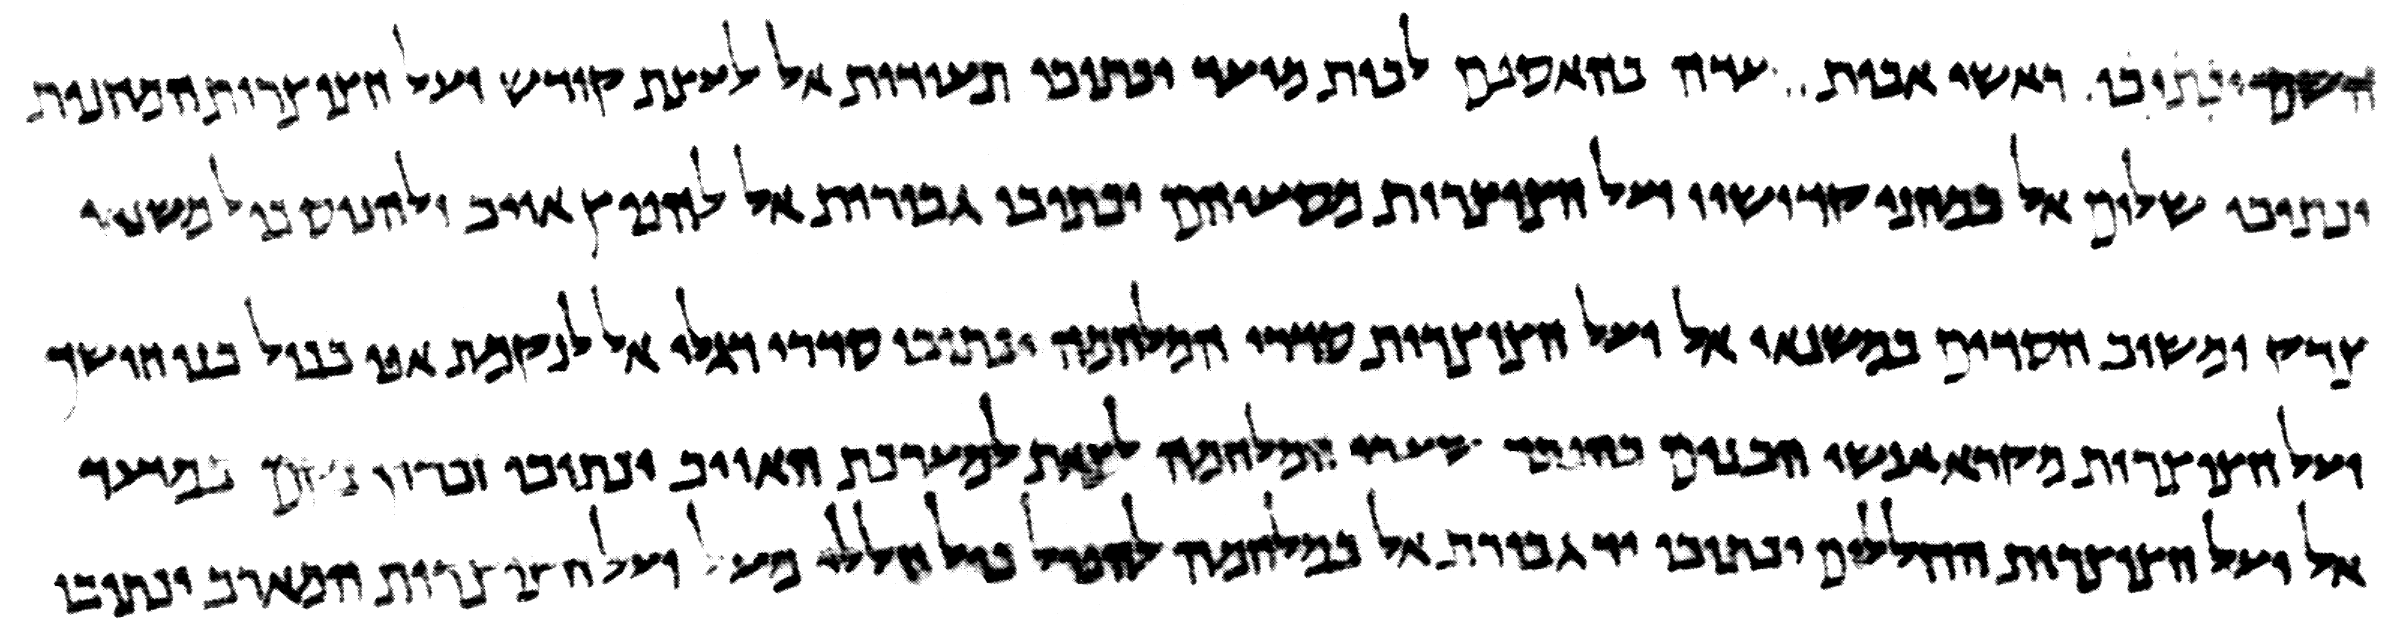 השם יכתובו ראשי אבות העדה בהאספם לבית מועד יכתובו תעודות אל לעצת קודש ועל חצוצרות המחנות
יכתובו שלום אל במחני קדושיו ועל חצוצרות מסעיהם יכתובו גבורות אל להפיץ אויב ולהניס כול משנאי
צדק ומשוב חסדים במשנאי אל ועל חצוצרות סדרי המלחמה יכתובו סדרי דגלי אל לנקמת אפו בכול בני חושך
ועל חצוצרות מקרא אנשי הבנים בהפתח שערי המלחמה לצאת למערכת האויב יכתובו זכרון נקם במועד
אל ועל חצוצרות החללים יכתובו יד גבורת אל במלחמה להפיל כול חללי מעל ועל חצוצרות המארב יכתובו